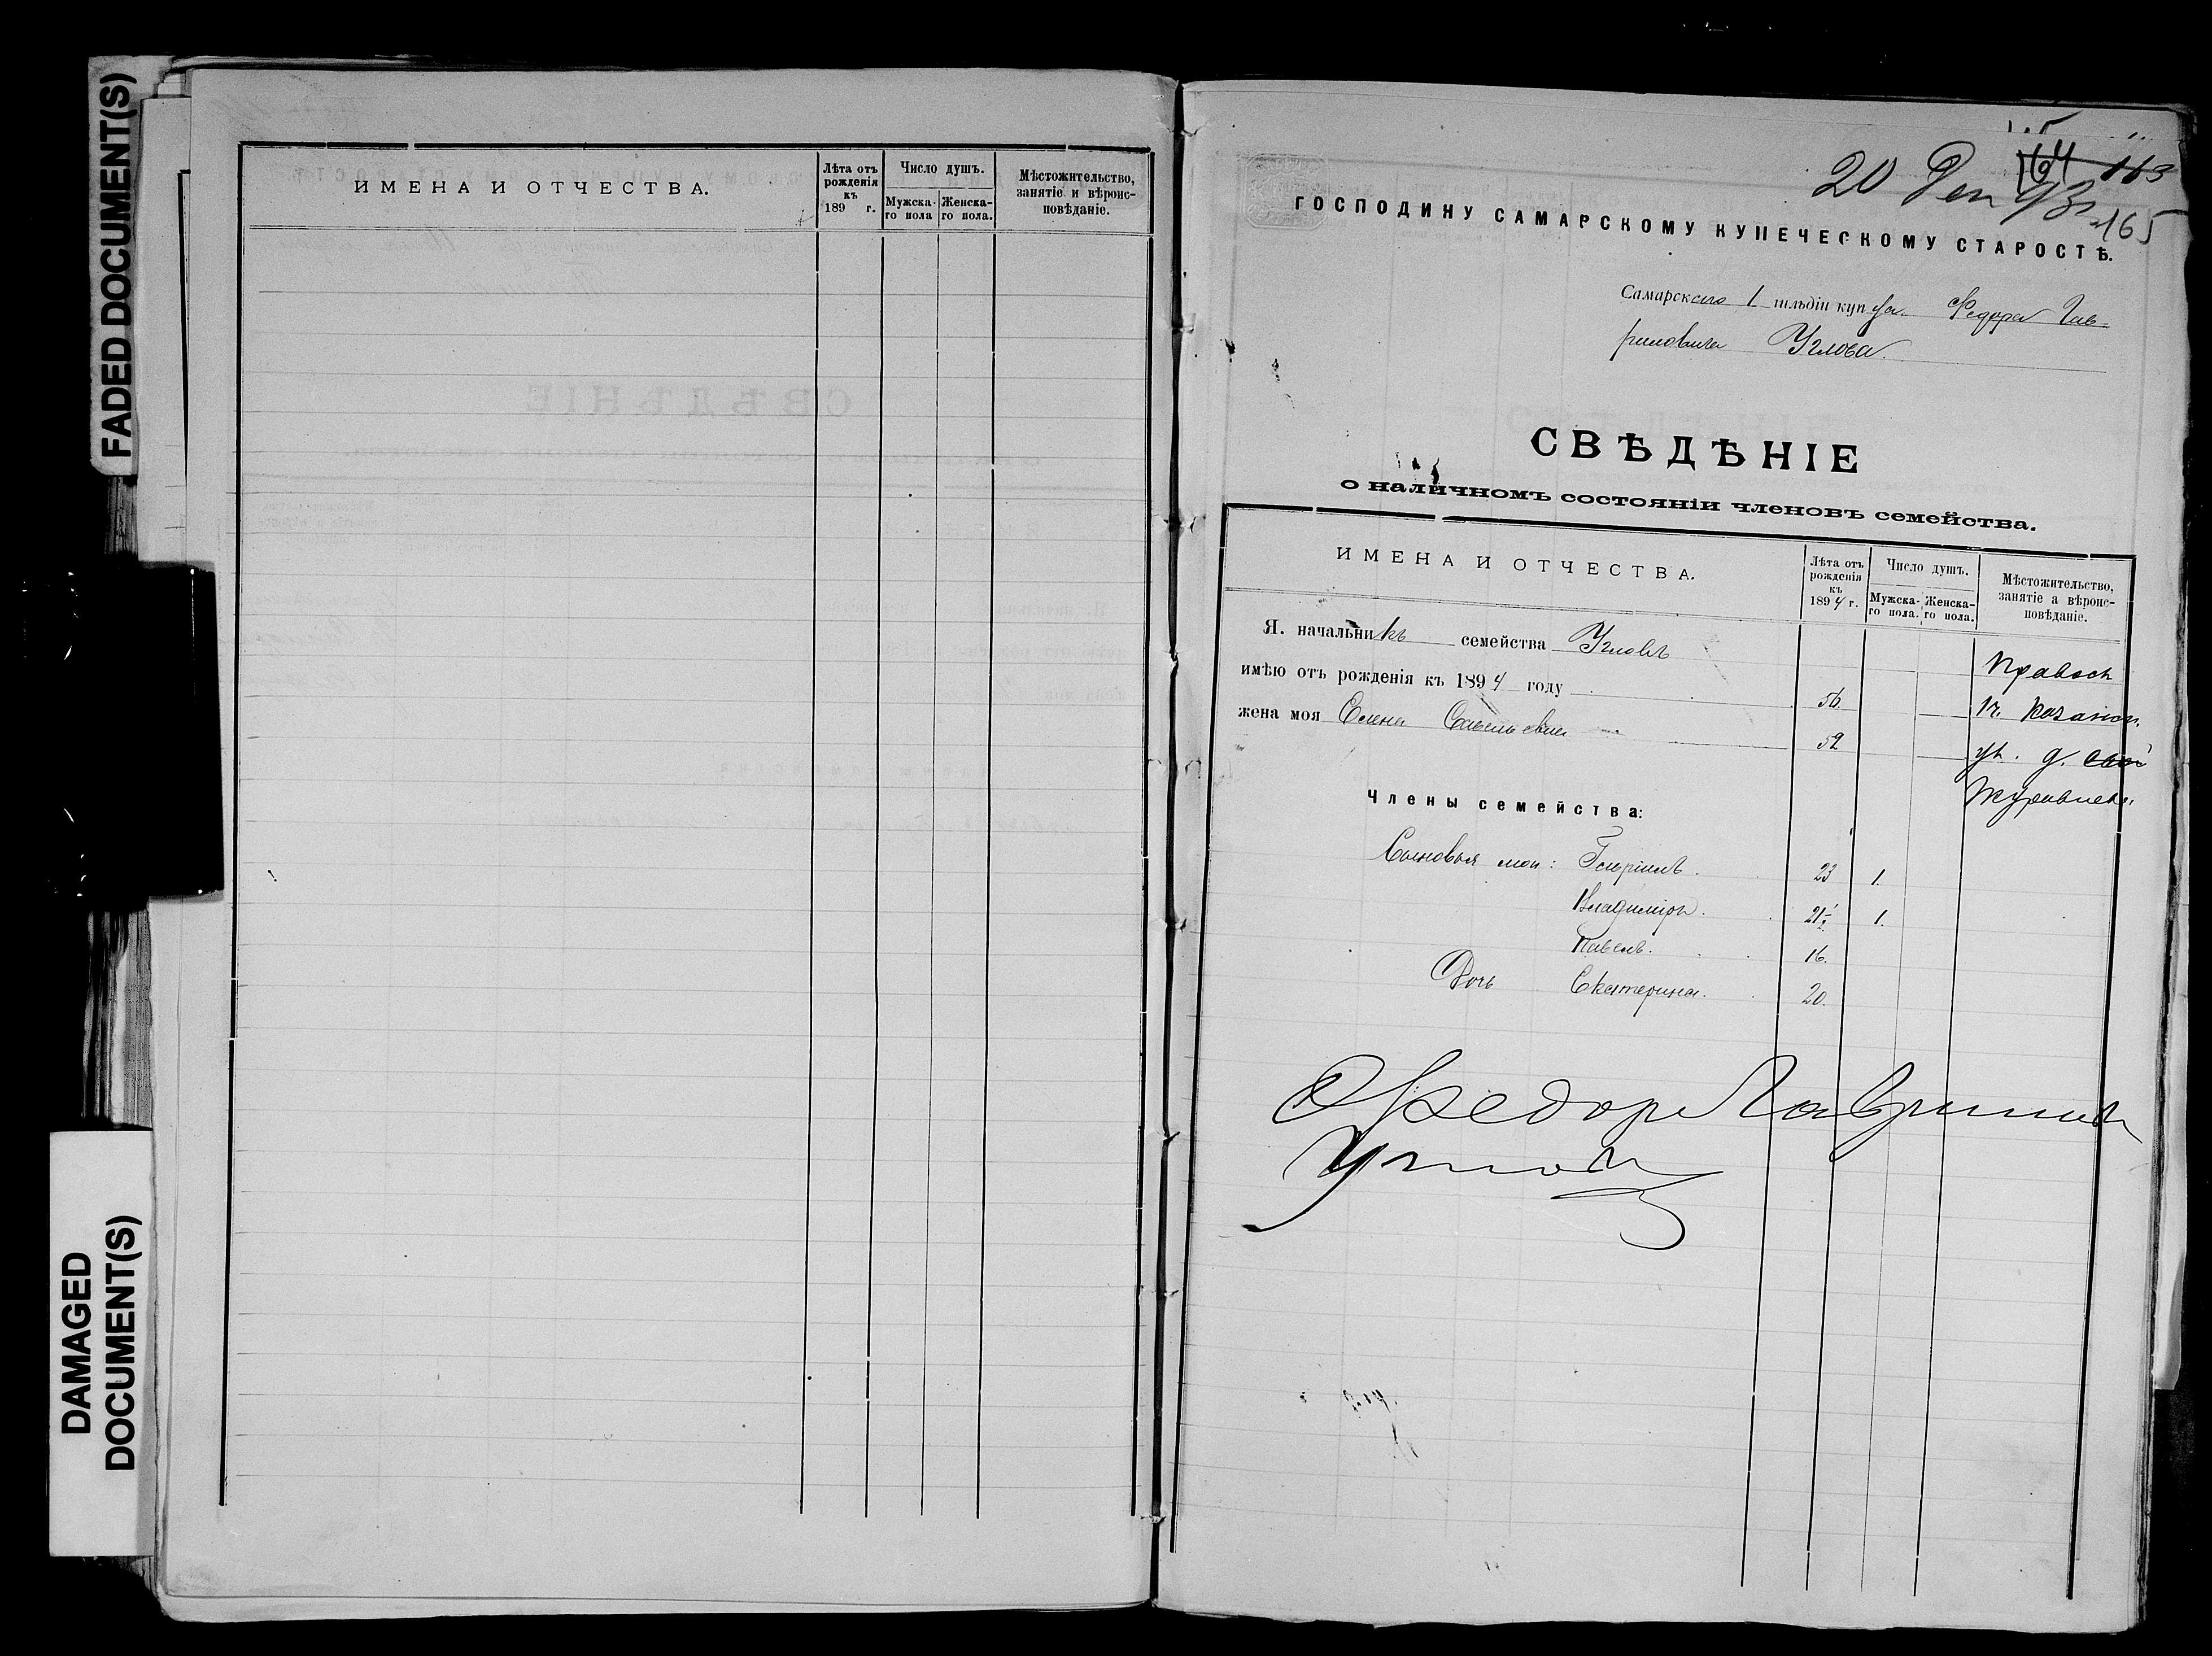 FADED DOCUMENT(S)
DAMAGED
DOCUMENT(S)
ИМЕНА И ОТЧЕСТВА.
Лѣта отъ рожденія къ 189 г.
Число душъ.
Мужска-го пола
Женска-го пола.
Мѣстожительство, занятіе и вѣроис-повѣданіе.
164 163
20 Дек 93 г.
165
ГОСПОДИНУ САМАРСКОМУ КУПЕЧЕСКОМУ СТАРОСТѢ.
Самарскаго 1 гильдіи купца Федора Гав-
риловича Углова.
СВѢДѢНІЕ
о наличномъ состояніи членовъ семейства.
ИМЕНА И ОТЧЕСТВА.
Лѣта отъ рожденія къ 1894 г.
Число душъ.
Мужска-го пола.
Женска-го пола.
Мѣстожительство, занятіе а вѣроис-повѣданіе.
Я. начальникъ семейства Угловъ
Правосл
имѣю отъ рожденія къ 1894 году 56.
1 ч. Казанск.
жена моя Елена Савельевна 52
ул. д. свой
Журавлева
Члены семейства:
Сыновья мои: Гавріилъ. 23 1.
Владиміръ. 21½ 1.
Павелъ. 16.
Дочь Екатерина. 20.
Федоръ Гавриловъ
Угловъ